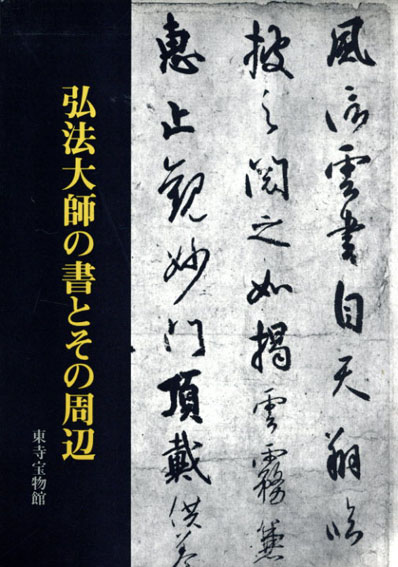 風信雲書自天翔臨
披之閲之如掲雲霧兼
恵止観妙門頂戴供養
弘法大師の書とその周辺
東寺宝物館